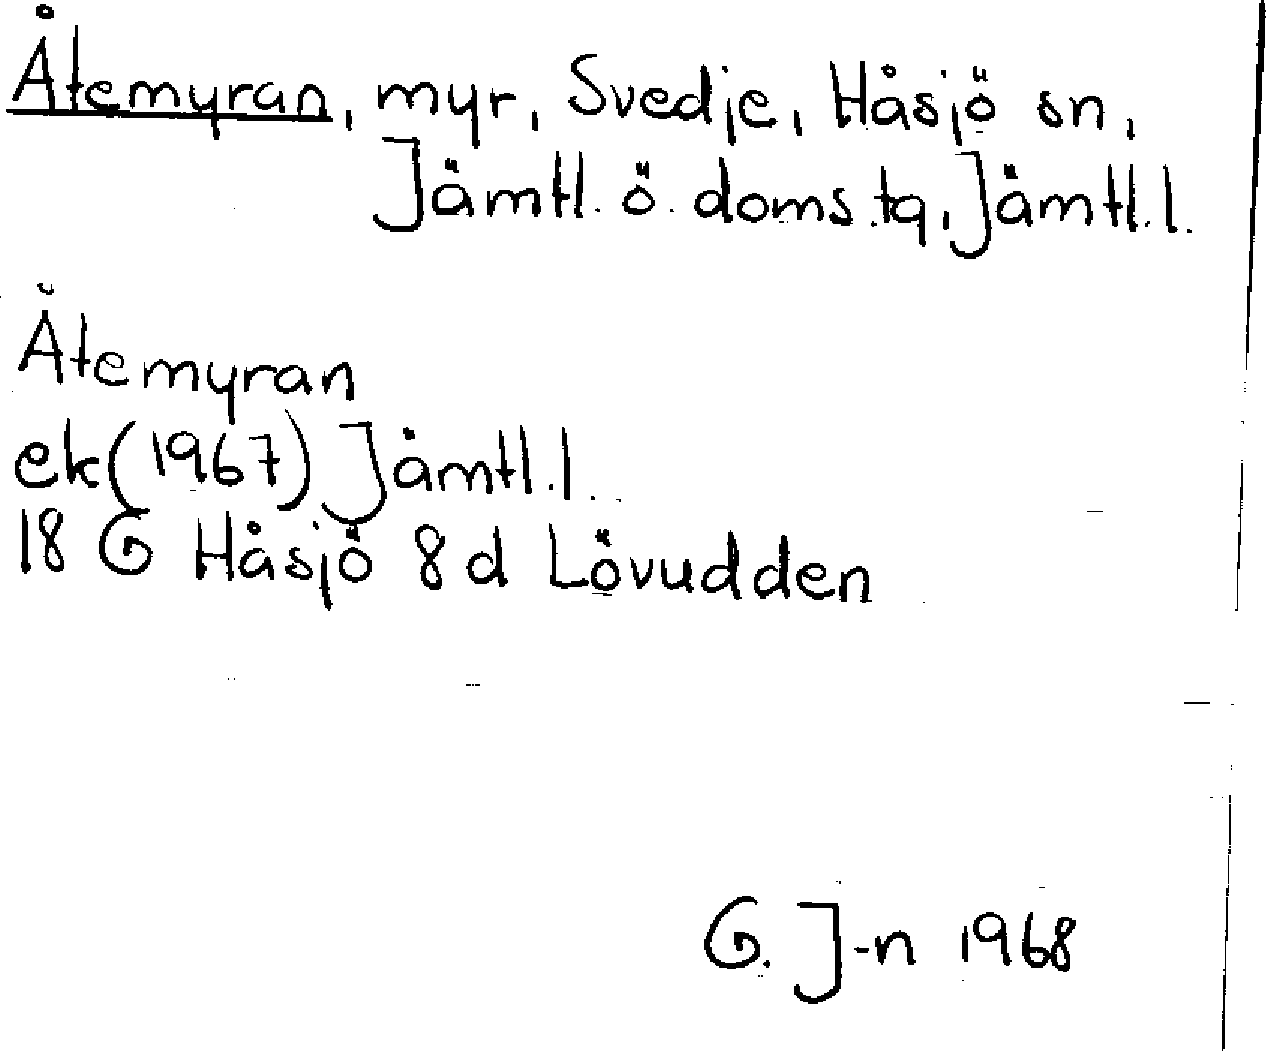 Åtemyran, myr, Svedje, Håsjö sn,
Jämtl. ö. doms.tg, Jämtl.l.
Åtemyran
ek(1967) Jämtl.l.
18 G Håsjö 8d Lövudden
G. J-n 1968